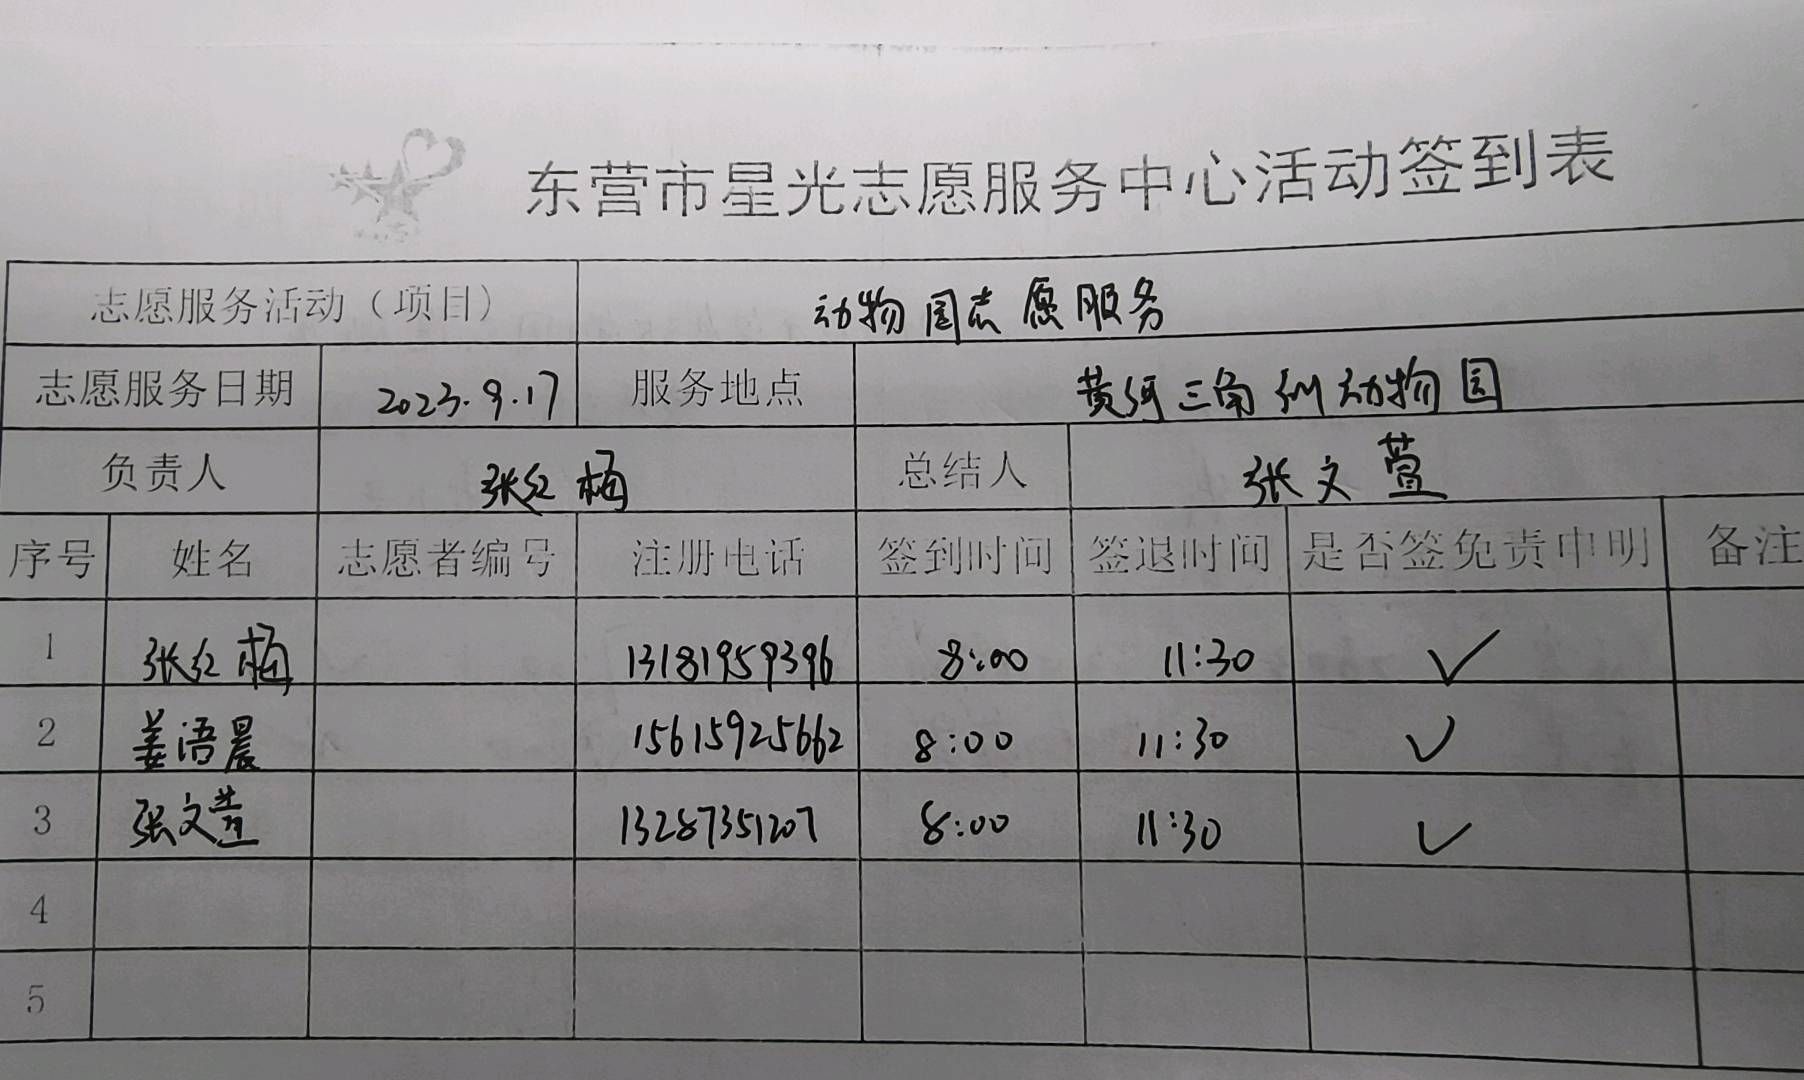 东营市星光志愿服务中心活动签到表
志愿服务活动（项目） 动物园志愿服务
志愿服务日期 2023.9.17 服务地点 黄河三角洲动物园
负责人 张红梅 总结人 张文萱
序号 姓名 志愿者编号 注册电话 签到时间 签退时间 是否签免责申明 备注
1 张红梅 13181959396 8:00 11:30 ✓
2 姜语晨 15615925662 8:00 11:30 ✓
3 张文萱 13287351207 8:00 11:30 ✓
4
5